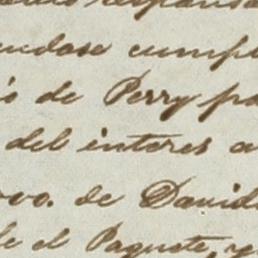 ndose cumpl
s de Perry pa
del interes a
000. de David
le el Paquete, y